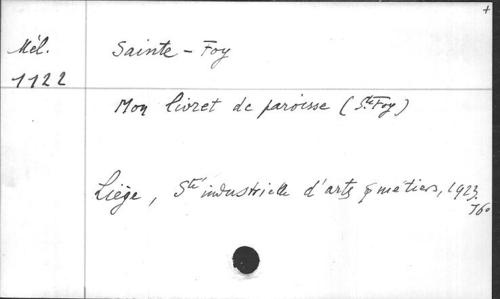 +
Mél. Sainte-Foy
1122
Mon livret de paroisse (Ste Foy)
Liège, Sté industrielle d'arts & métiers, 1923.
16°